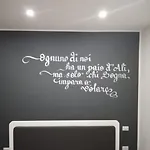 Ognuno di noi
ha un paio d'Ali,
ma solo chi Sogna,
impara a
volare